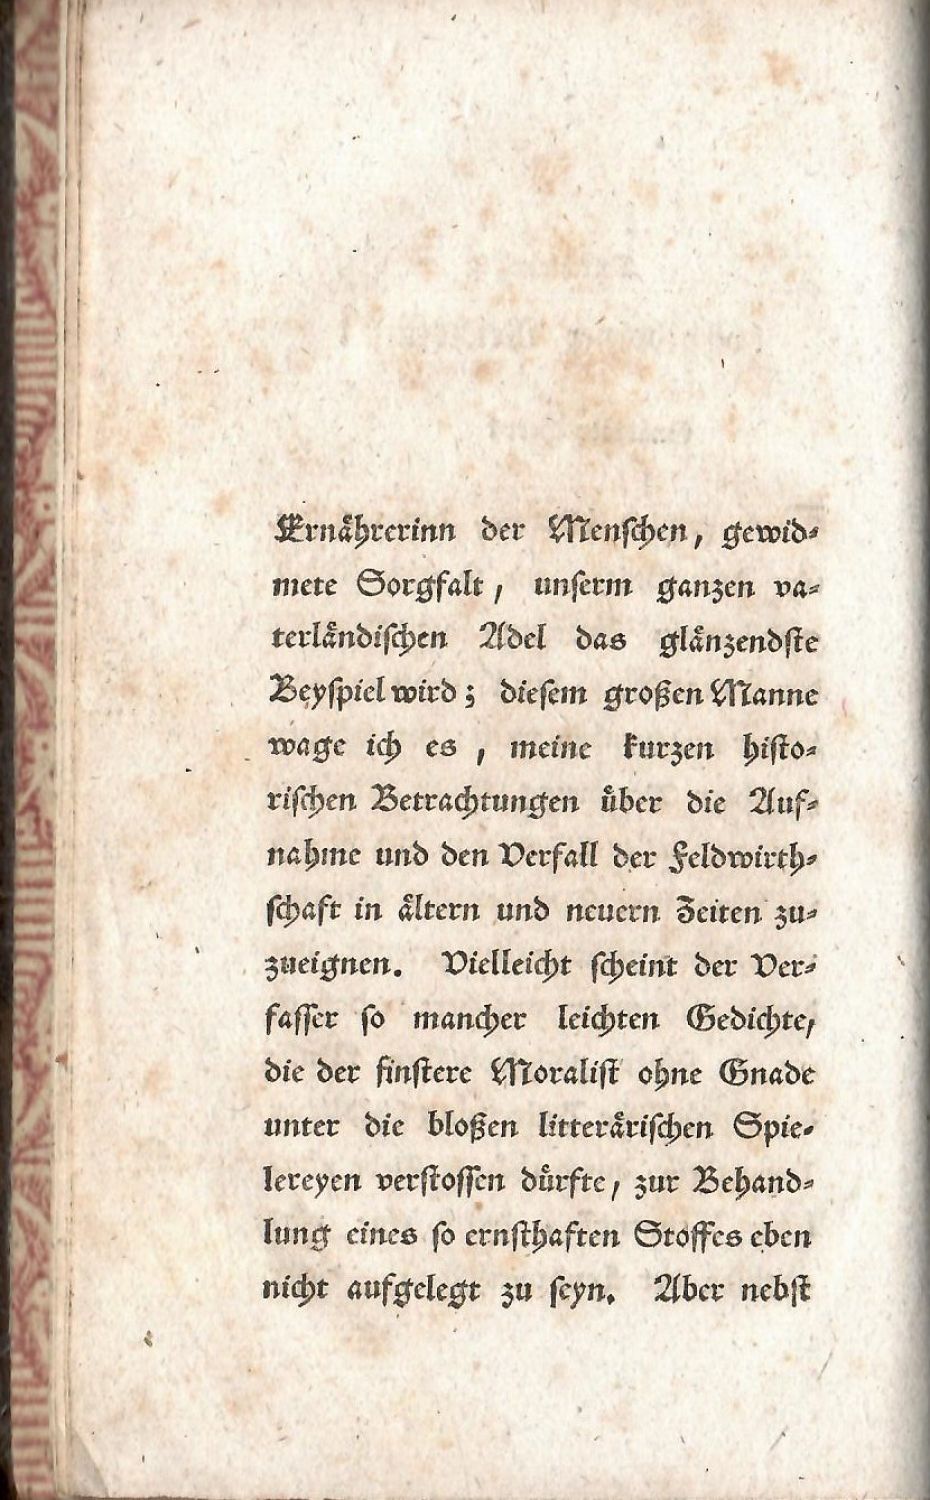 Ernährerinn der Menschen, gewid-
mete Sorgfalt, unserm ganzen va-
terländischen Adel das glänzendste
Beyspiel wird; diesem großen Manne
wage ich es, meine kurzen histo-
rischen Betrachtungen über die Auf-
nahme und den Verfall der Feldwirth-
schaft in ältern und neuern Zeiten zu-
zueignen. Vielleicht scheint der Ver-
fasser so mancher leichten Gedichte,
die der finstere Moralist ohne Gnade
unter die bloßen litterärischen Spie-
lereyen verstossen dürfte, zur Behand-
lung eines so ernsthaften Stoffes eben
nicht aufgelegt zu seyn. Aber nebst